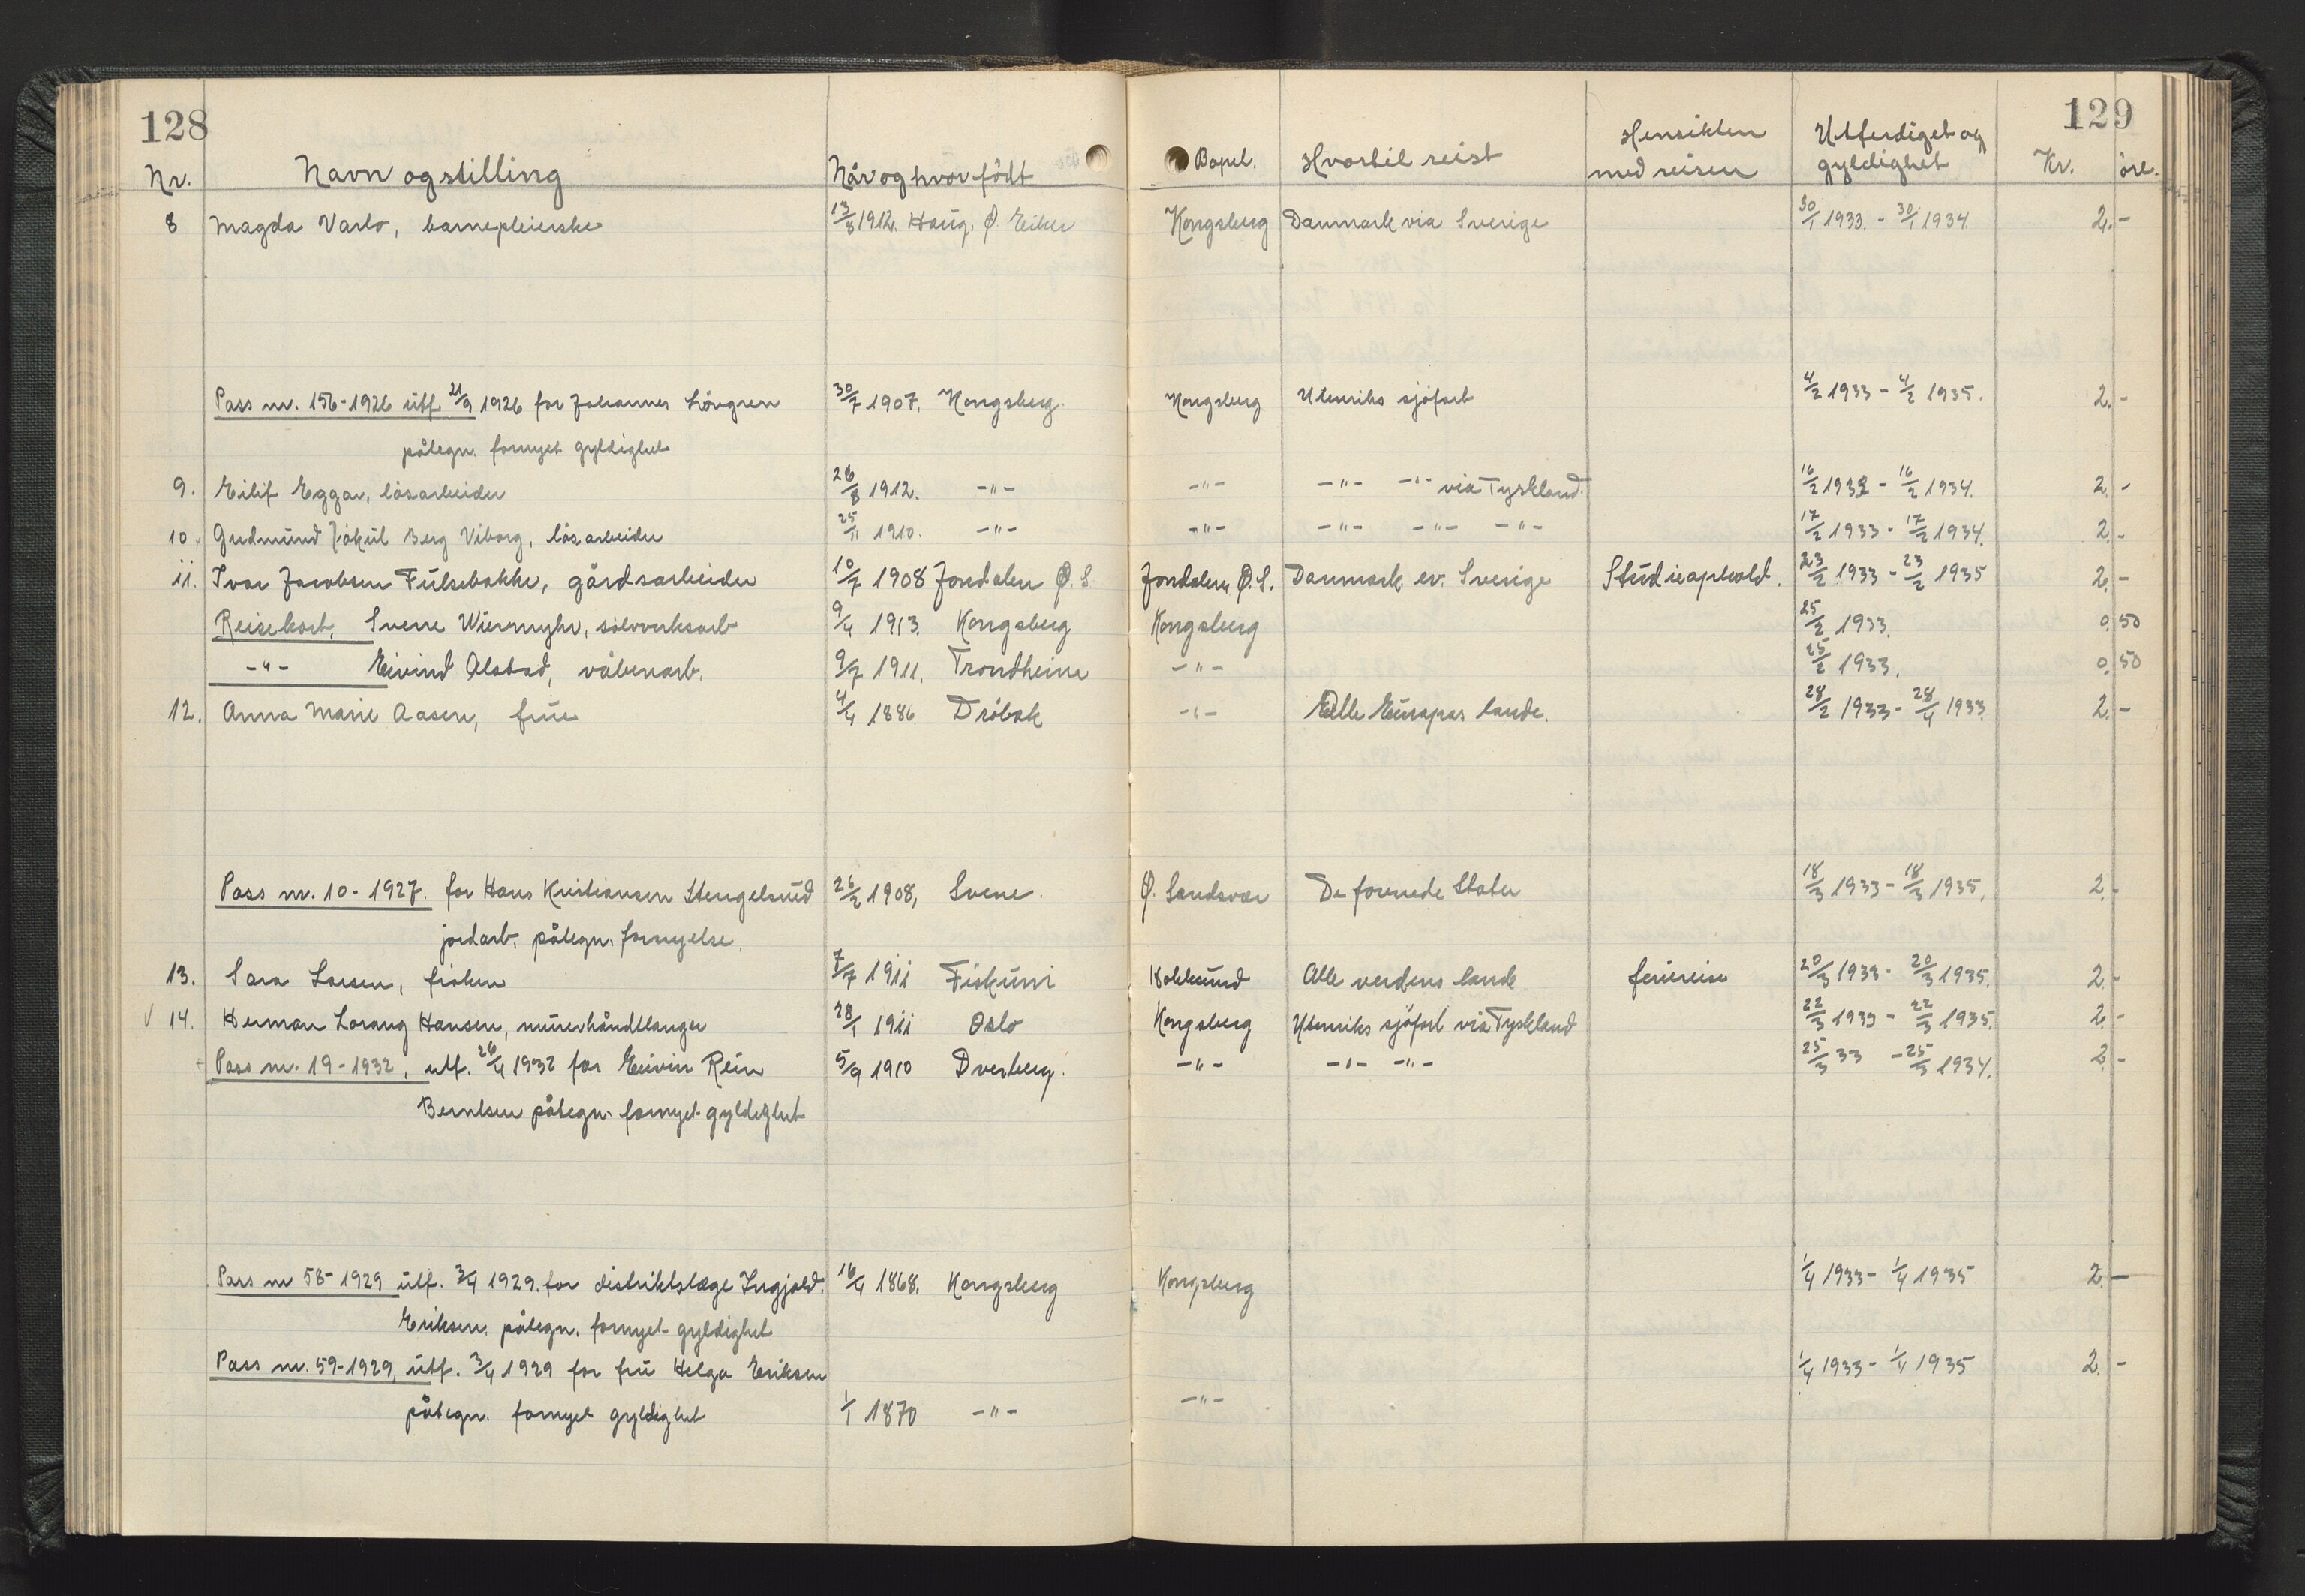 128
129
Nr. Navn og stilling Når og hvor födt Bopel. Hvortil reist Hensikten med reisen Utferdiget og gyldighet Kr. öre.
8 Magda Varlo, barnepleierske 13/8 1912. Haug, Ø. Eiker Kongsberg Danmark via Sverige 30/1 1933. - 30/1 1934 2. -
Pass nr. 156-1926 utf. 21/9 1926 for Johannes Lövgren 30/7 1907. Kongsberg. Kongsberg Utenriks sjöfart 4/2 1933 - 4/2 1935. 2. -
påtegn. fornyet gyldighet
9. Eilif Eggar, lösarbeider 26/8 1912. -"- -"- -"- -"- via Tyskland. 16/2 1933 - 16/2 1934. 2. -
10 Gudmund Jökul Berg Viborg, lösarbeider 25/11 1910. -"- -"- -"- -"- -"- 17/2 1933 - 17/2 1934. 2. -
11. Ivar Jacobsen Fulsebakke, gårdsarbeider 10/7 1908 Jondalen Ø. S Jondalen Ø. S. Danmark ev. Sverige Studieophold. 23/2 1933 - 23/2 1935 2. -
Reisekort, Sverre Wiermyhr, sölvverksarb 9/4 1913. Kongsberg Kongsberg 25/2 1933. 0. 50
-"- Eivind Alstad, våbenarb. 9/7 1911. Trondheim -"- 25/2 1933. 0. 50
12. Anna Marie Aasen, frue 4/4 1886 Dröbak -"- Alle Europas lande. 28/2 1933 - 28/4 1933. 2. -
Pass nr. 10 - 1927. for Hans Kristiansen Stengelsrud 26/2 1908, Svene. Ø. Sandsvær De forenede Stater 18/3 1933 - 18/3 1935. 2. -
jordarb. påtegn. fornyelse.
13. Sara Larsen, fröken 7/7 1911 Fiskum Hokksund Alle verdens lande feriereise 20/3 1933 - 20/3 1935. 2. -
√ 14. Herman Lorang Hansen, murerhåndtlanger 28/1 1911 Oslo Kongsberg Utenriks sjöfart via Tyskland 22/3 1933 - 22/3 1935. 2. -
Pass nr. 19 - 1932, utf. 26/4 1932 for Eivin Rein 5/9 1910 Dverberg. -"- -"- -"- 25/3 33 - 25/3 1934. 2. -
Berntsen påtegn. fornyet gyldighet
Pass nr 58 - 1929 utf. 3/4 1929. for distriktslæge Ingjald. 16/4 1868. Kongsberg Kongsberg 1/4 1933 - 1/4 1935 2. -
Eriksen, påtegn. fornyet gyldighet
Pass nr. 59-1929, utf. 3/4 1929 for fru Helga Eriksen 1/4 1933 - 1/4 1935 2. -
påtegn. fornyet gyldighet 1/1 1870 -"- -"-